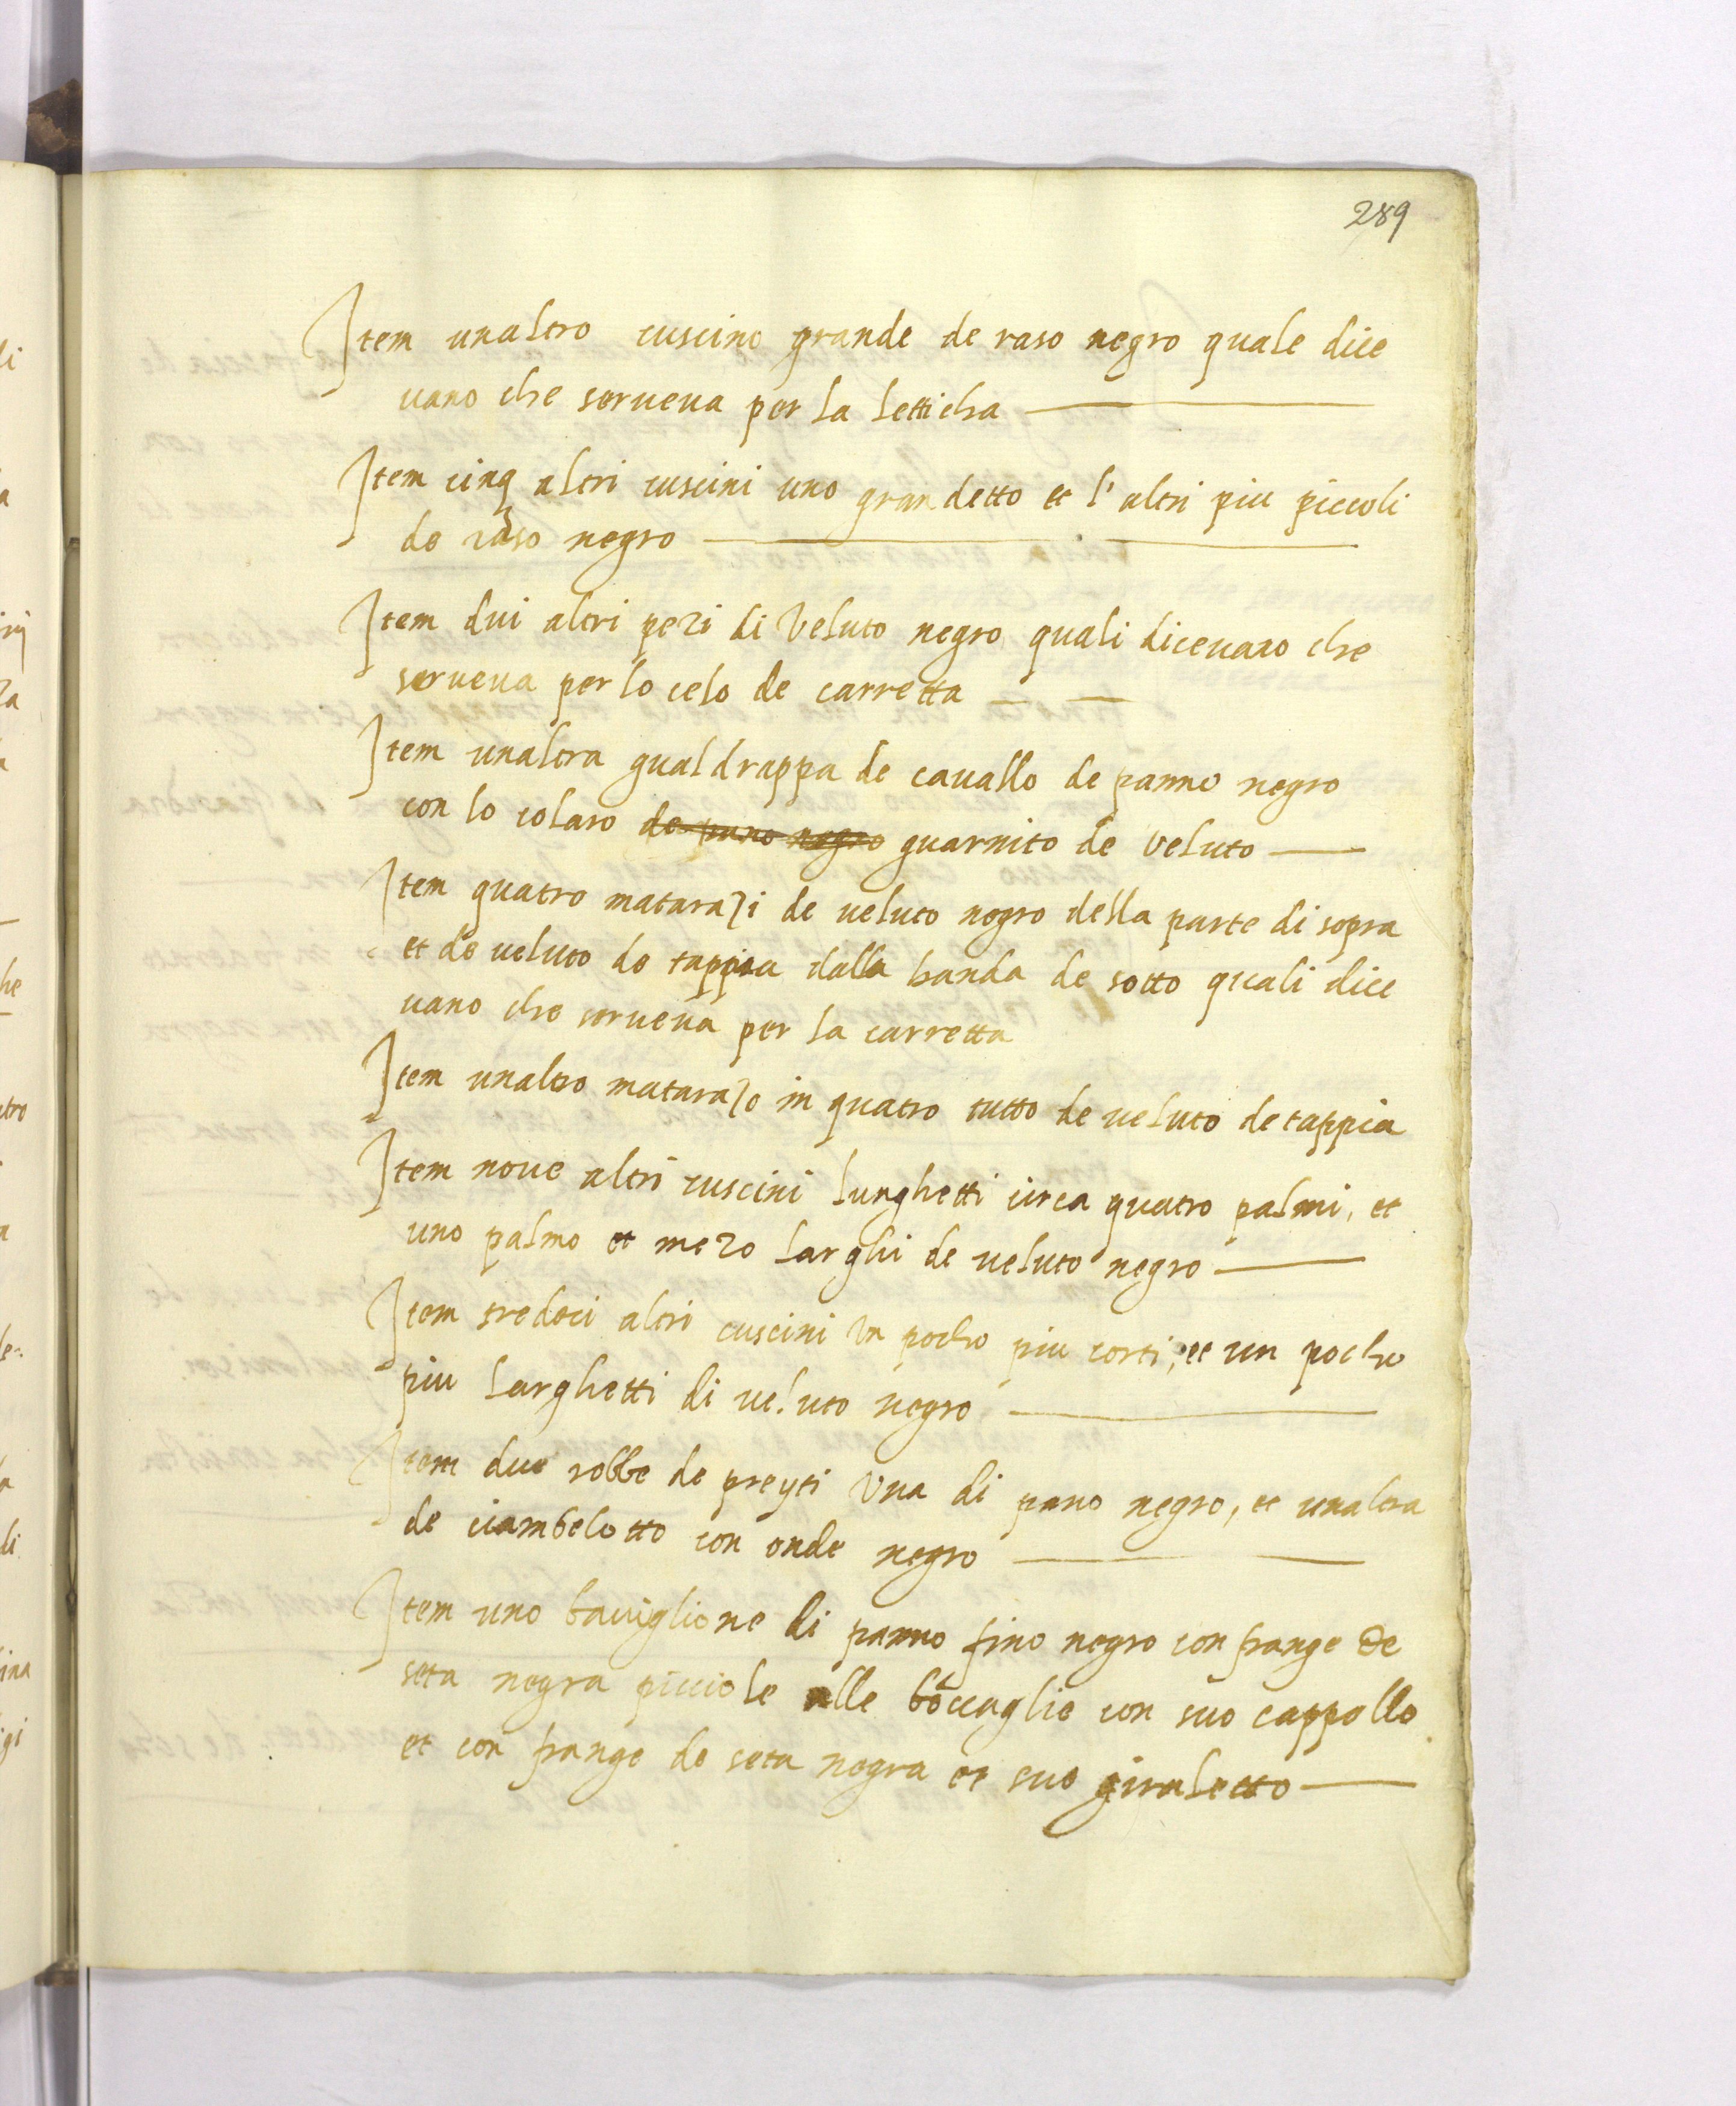 289
Item unaltro cuscino grande de raso negro quale dice
uano che serueua per la letticha
Item cinq altri cuscini uno grandetto et l'altri piu piccoli
de raso negro
Item dui altri pezi di Veluto negro quali diceuano che
serueua per lo celo de carretta
Item unaltra gualdrappa de cauallo de panno negro
con lo colaro de pano negro guarnito de veluto
Item quatro matarazi de ueluto negro della parte di sopra
et de ueluto de tappia dalla banda de sotto quali dice
uano che serueua per la carretta
Item unaltro matarazo in quatro tutto de ueluto de tappia
Item noue altri cuscini lunghetti circa quatro palmi, et
uno palmo et mezo larghi de ueluto negro
Item tredeci altri cuscini Un pocho piu corti, et un pocho
piu larghetti di ueluto negro
Item due robbe de preyti Vna di pano negro, et unaltra
de ciambelotto con onde negro
Item uno bauiglione di panno fino negro con frange de
seta negra picciole alle boccaglie con suo cappello
et con frange de seta negra et suo giraletto